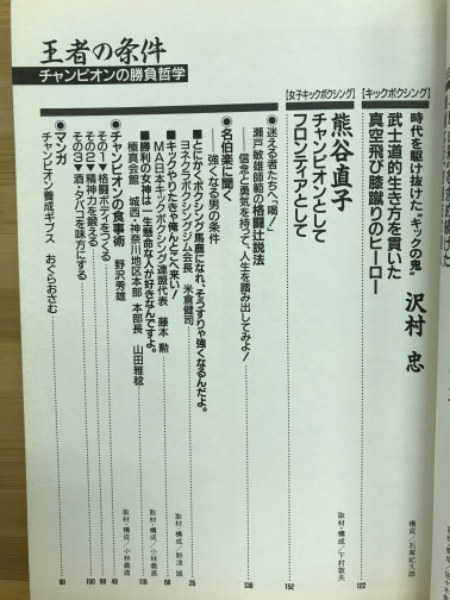 王者の条件
チャンピオンの勝負哲学
【キックボクシング】
時代を駆け抜けた“キックの鬼” 沢村 忠
武士道的生き方を貫いた
真空飛び膝蹴りのヒーロー
構成／石塚紀久雄
122
【女子キックボクシング】
熊谷直子
チャンピオンとして
フロンティアとして
取材・構成／下村敦夫
152
●迷える者たちへ、「喝」!
瀬戸敏雄師範の格闘辻説法
──信念と勇気を持って、人生を踏み出してみよ!
136
●名伯楽に聞く
──強くなる男の条件
■とにかく、ボクシング馬鹿になれ、そうすりゃ強くなるんだよ。
ヨネクラボクシングジム会長 米倉健司
取材・構成／野浪 誠
26
■キックやりたきゃ俺んとこへ来い!
MA日本キックボクシング連盟代表 藤本 勲
68
■勝利の女神は一生懸命な人が好きなんですよ。
極真会館 城西・神奈川地区本部 本部長 山田雅稔
取材・構成／小林義直
116
●チャンピオンの食事術 野沢秀雄
取材・構成／小林義直
その1▼格闘ボディをつくる
48
その2▼精神力を鍛える
98
その3▼酒・タバコを味方にする
150
●マンガ
チャンピオン養成ギプス おぐらおさむ
90